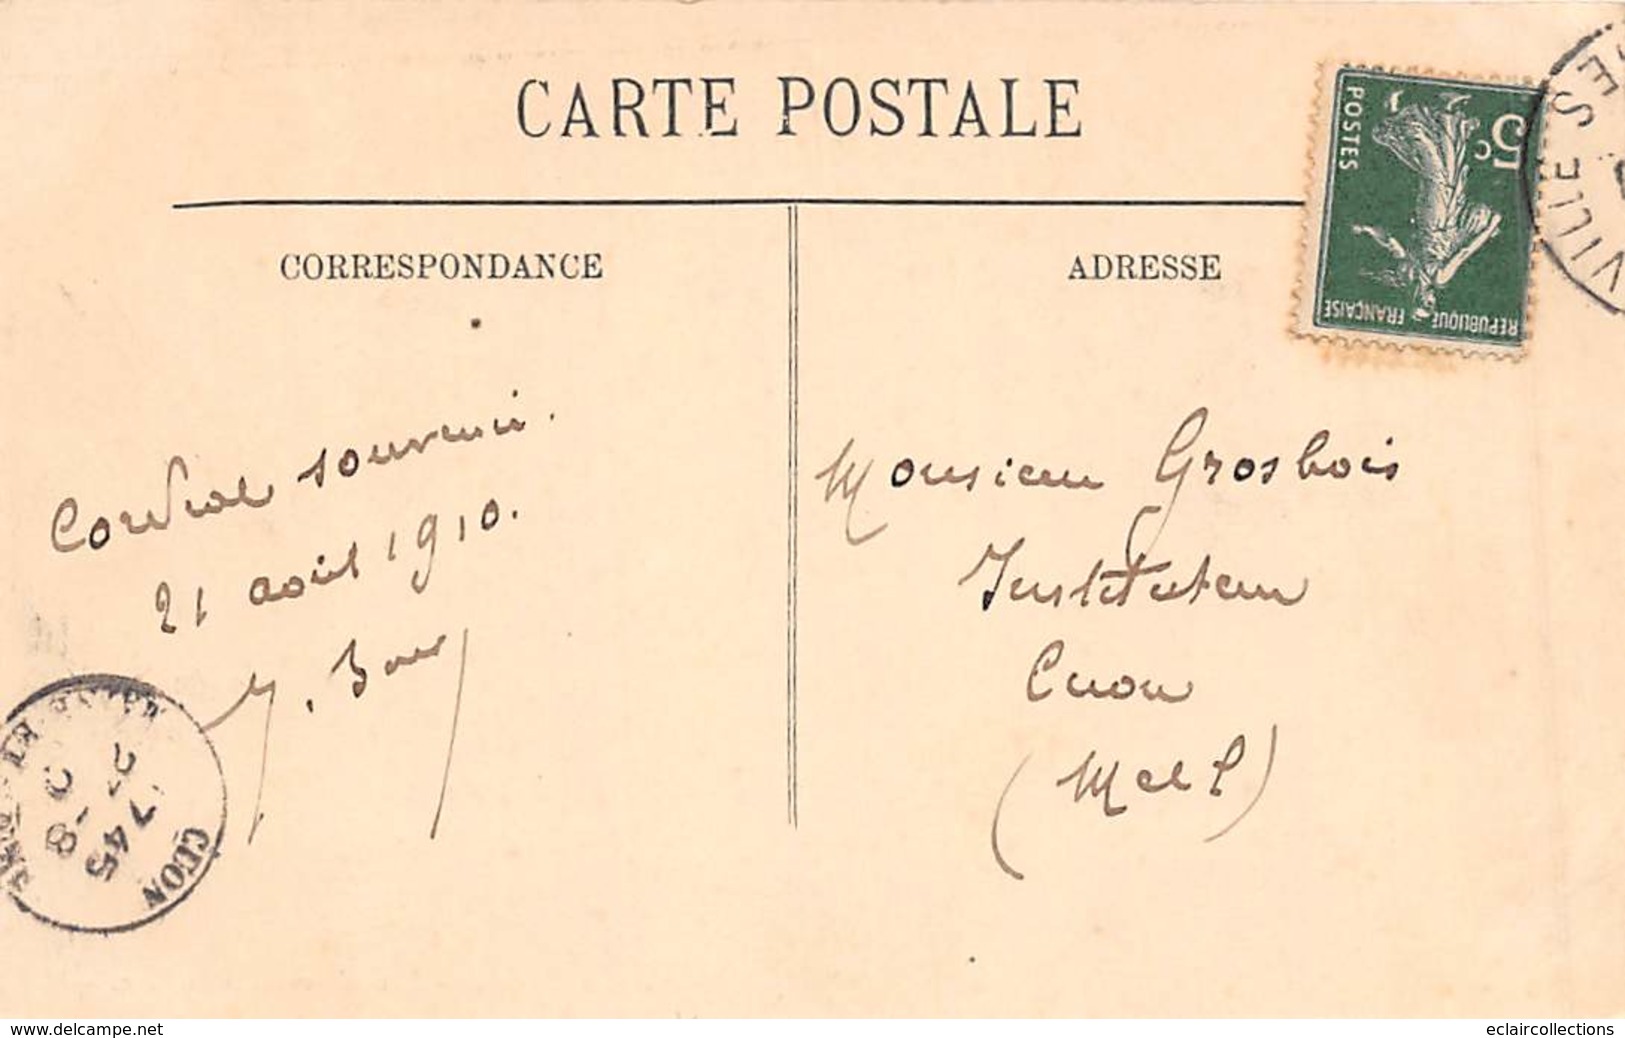 CARTE POSTALE
CORRESPONDANCE
ADRESSE
POSTES
5c
REPUBLIQUE FRANÇAISE
Cordial souvenir.
21 août 1910.
Monsieur Grosbois
Instituteur
Cuon
(M et L)
CUON
7 45
27 - 8
delcampe.net
eclaircollections